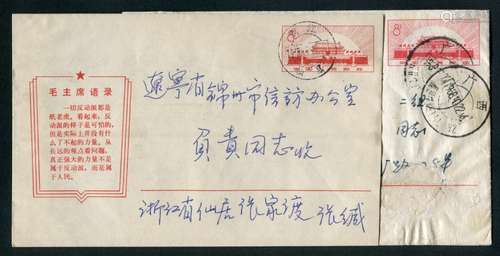 毛主席语录
一切反动派都是
纸老虎。看起来，反
动派的样子是可怕的，
但是实际上并没有什
么了不起的力量。从
长远的观点看问题，
真正强大的力量不是
属于反动派，而是属
于人民。
8
辽宁省锦州市信访办公室
负责同志收
浙江省仙居张家渡 张斌
8
二纺
同志